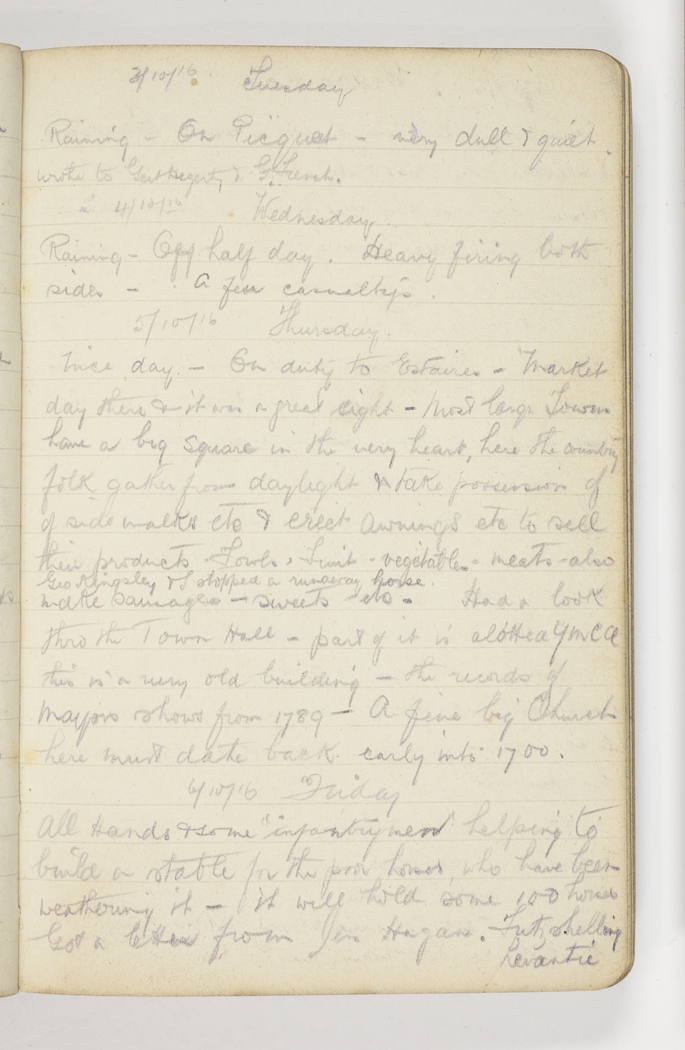 3/10/16 Tuesday
Raining - On Picquet - very dull & quiet.
wrote to Gert Hegerty & G. French.
4/10/16 Wednesday.
Raining - Off half day. Heavy firing both
sides - A few casualtys.
5/10/16 Thursday.
Nice day. - On duty to Estaires - Market
day there & it was a great sight - Most large Towns
have a big square in the very heart, here the country
folk gather from daylight & take possession of
of sidewalks etc & erect awnings etc to sell
their products - Fowls, Fruit - vegetables - meats - also
Geo Kingsley & I stopped a runaway horse.
make sausages - sweets etc - Had a look
thro the Town Hall - part of it is allotted YMCA
this is a very old building - the records of
Mayors shows from 1789 - A fine big Church
here must date back early into 1700.
6/10/16 Friday
All Hands & some "infantrymen" helping to
build a stable for the poor horses, who have been
weathering it - it will hold some 100 horses
Got a letter from Jim Hagan. Fritz shelling
Levantie